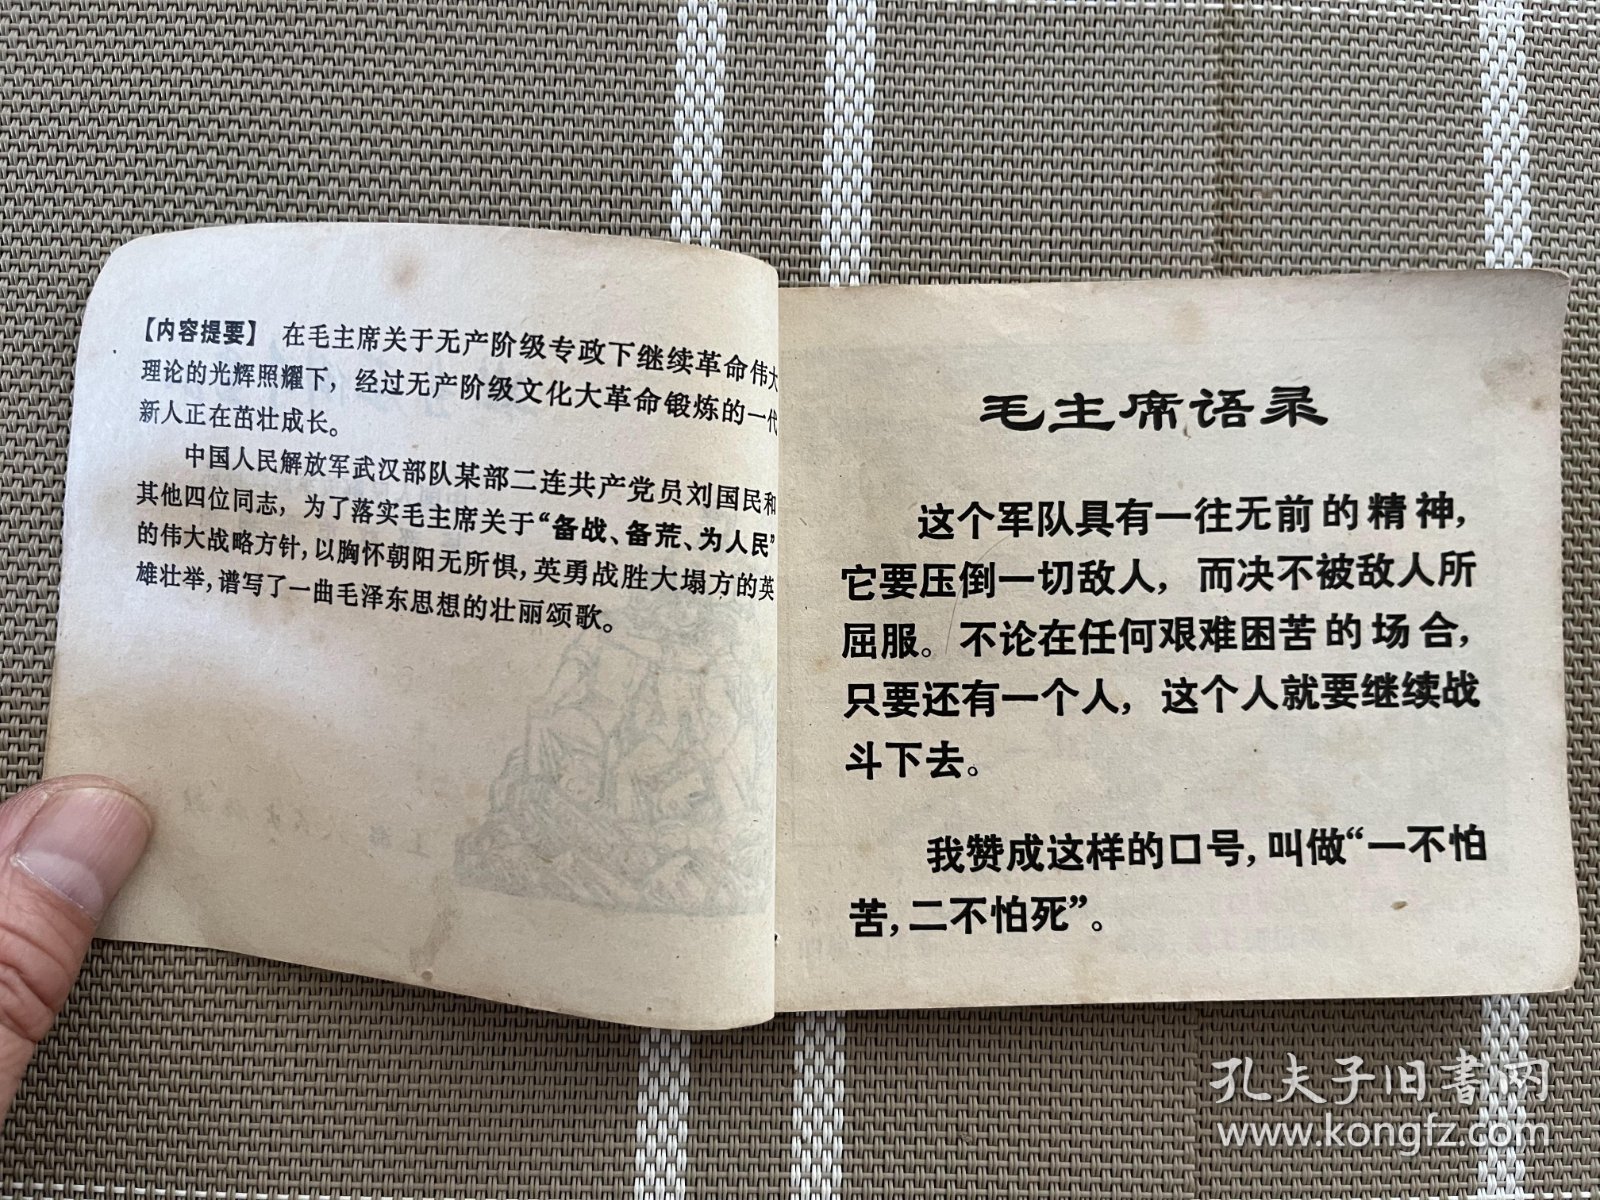 【内容提要】 在毛主席关于无产阶级专政下继续革命伟大
理论的光辉照耀下，经过无产阶级文化大革命锻炼的一代
新人正在茁壮成长。
中国人民解放军武汉部队某部二连共产党员刘国民和
其他四位同志，为了落实毛主席关于“备战、备荒、为人民”
的伟大战略方针，以胸怀朝阳无所惧，英勇战胜大塌方的英
雄壮举，谱写了一曲毛泽东思想的壮丽颂歌。
毛主席语录
这个军队具有一往无前的精神，
它要压倒一切敌人，而决不被敌人所
屈服。不论在任何艰难困苦的场合，
只要还有一个人，这个人就要继续战
斗下去。
我赞成这样的口号，叫做“一不怕
苦，二不怕死”。
孔夫子旧書网
www.kongfz.com